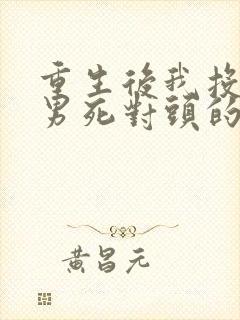 重生後我投
男死對頭的
黃昌元